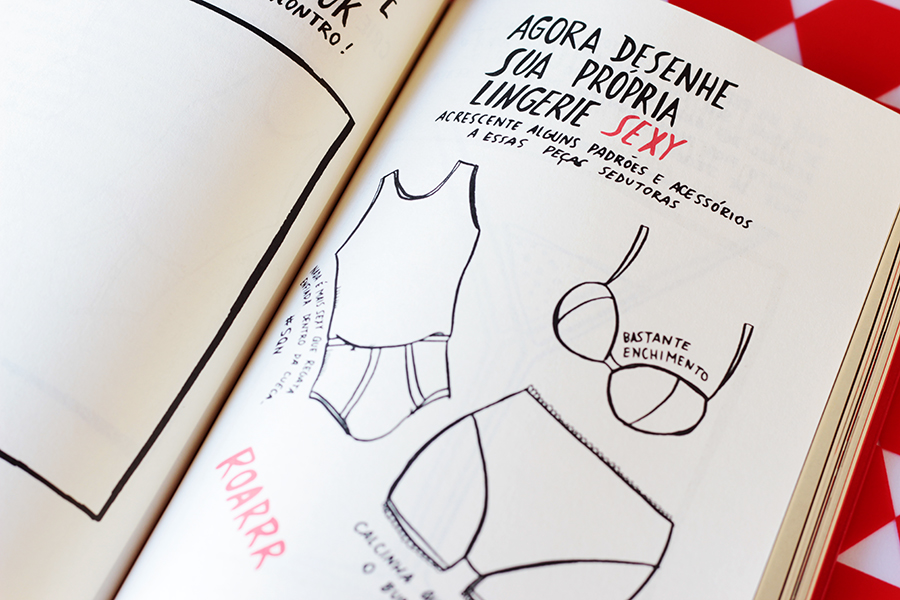 E
OK
CONTRO!
AGORA DESENHE
SUA PRÓPRIA
LINGERIE SEXY
ACRESCENTE ALGUNS PADRÕES E ACESSÓRIOS
A ESSAS PEÇAS SEDUTORAS
NADA É MAIS SEXY QUE REGATA
ENFIADA DENTRO DA CUECA.
#SQN
BASTANTE
ENCHIMENTO
ROARRR
CALCINHA
O